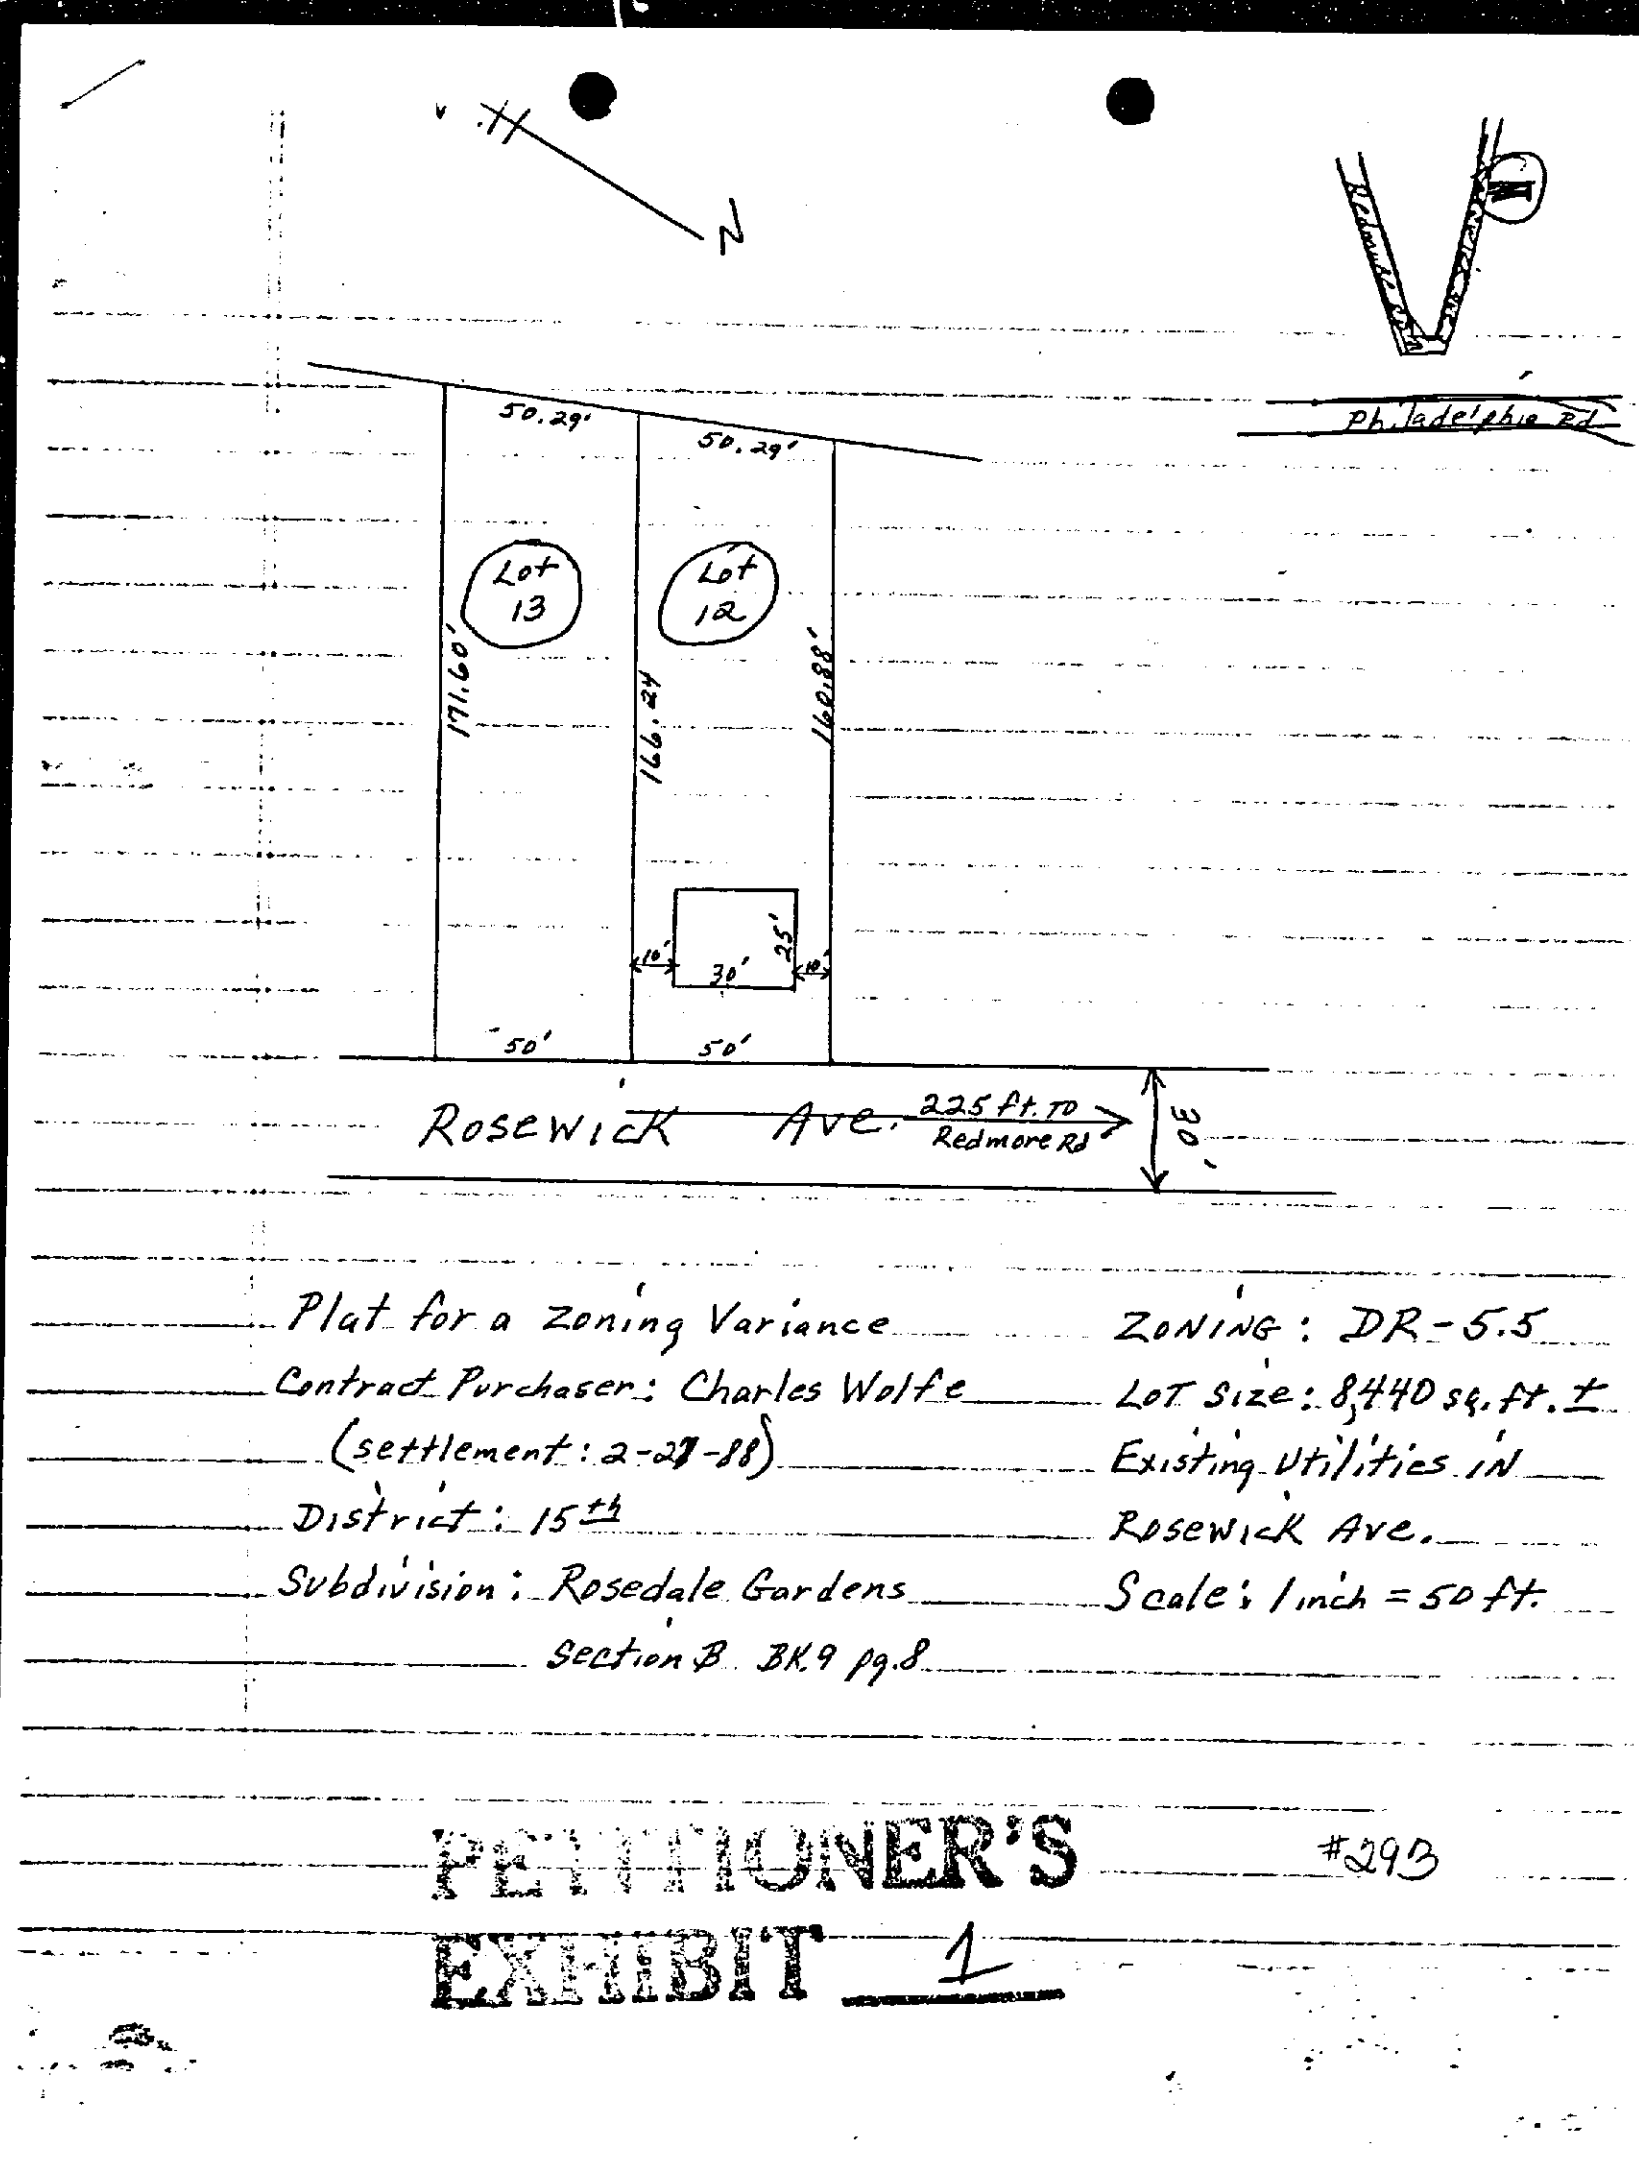 N
Redmore Rd
Philadelphia Rd
50.29'
50.29'
Lot
13
Lot
12
171.60'
166.24
160.88'
25'
10'
30'
10'
50'
50'
Rosewick Ave.
225 ft. TO
Redmore Rd
30'
Plat for a Zoning Variance
Contract Purchaser: Charles Wolfe
(settlement: 2-27-88)
District: 15th
Subdivision: Rosedale Gardens
Section B BK.9 pg.8
ZONING: DR-5.5
LOT Size: 8,440 sq. ft. ±
Existing Utilities IN
Rosewick Ave.
Scale: 1 inch = 50 ft.
PETITIONER'S
EXHIBIT 1
#293